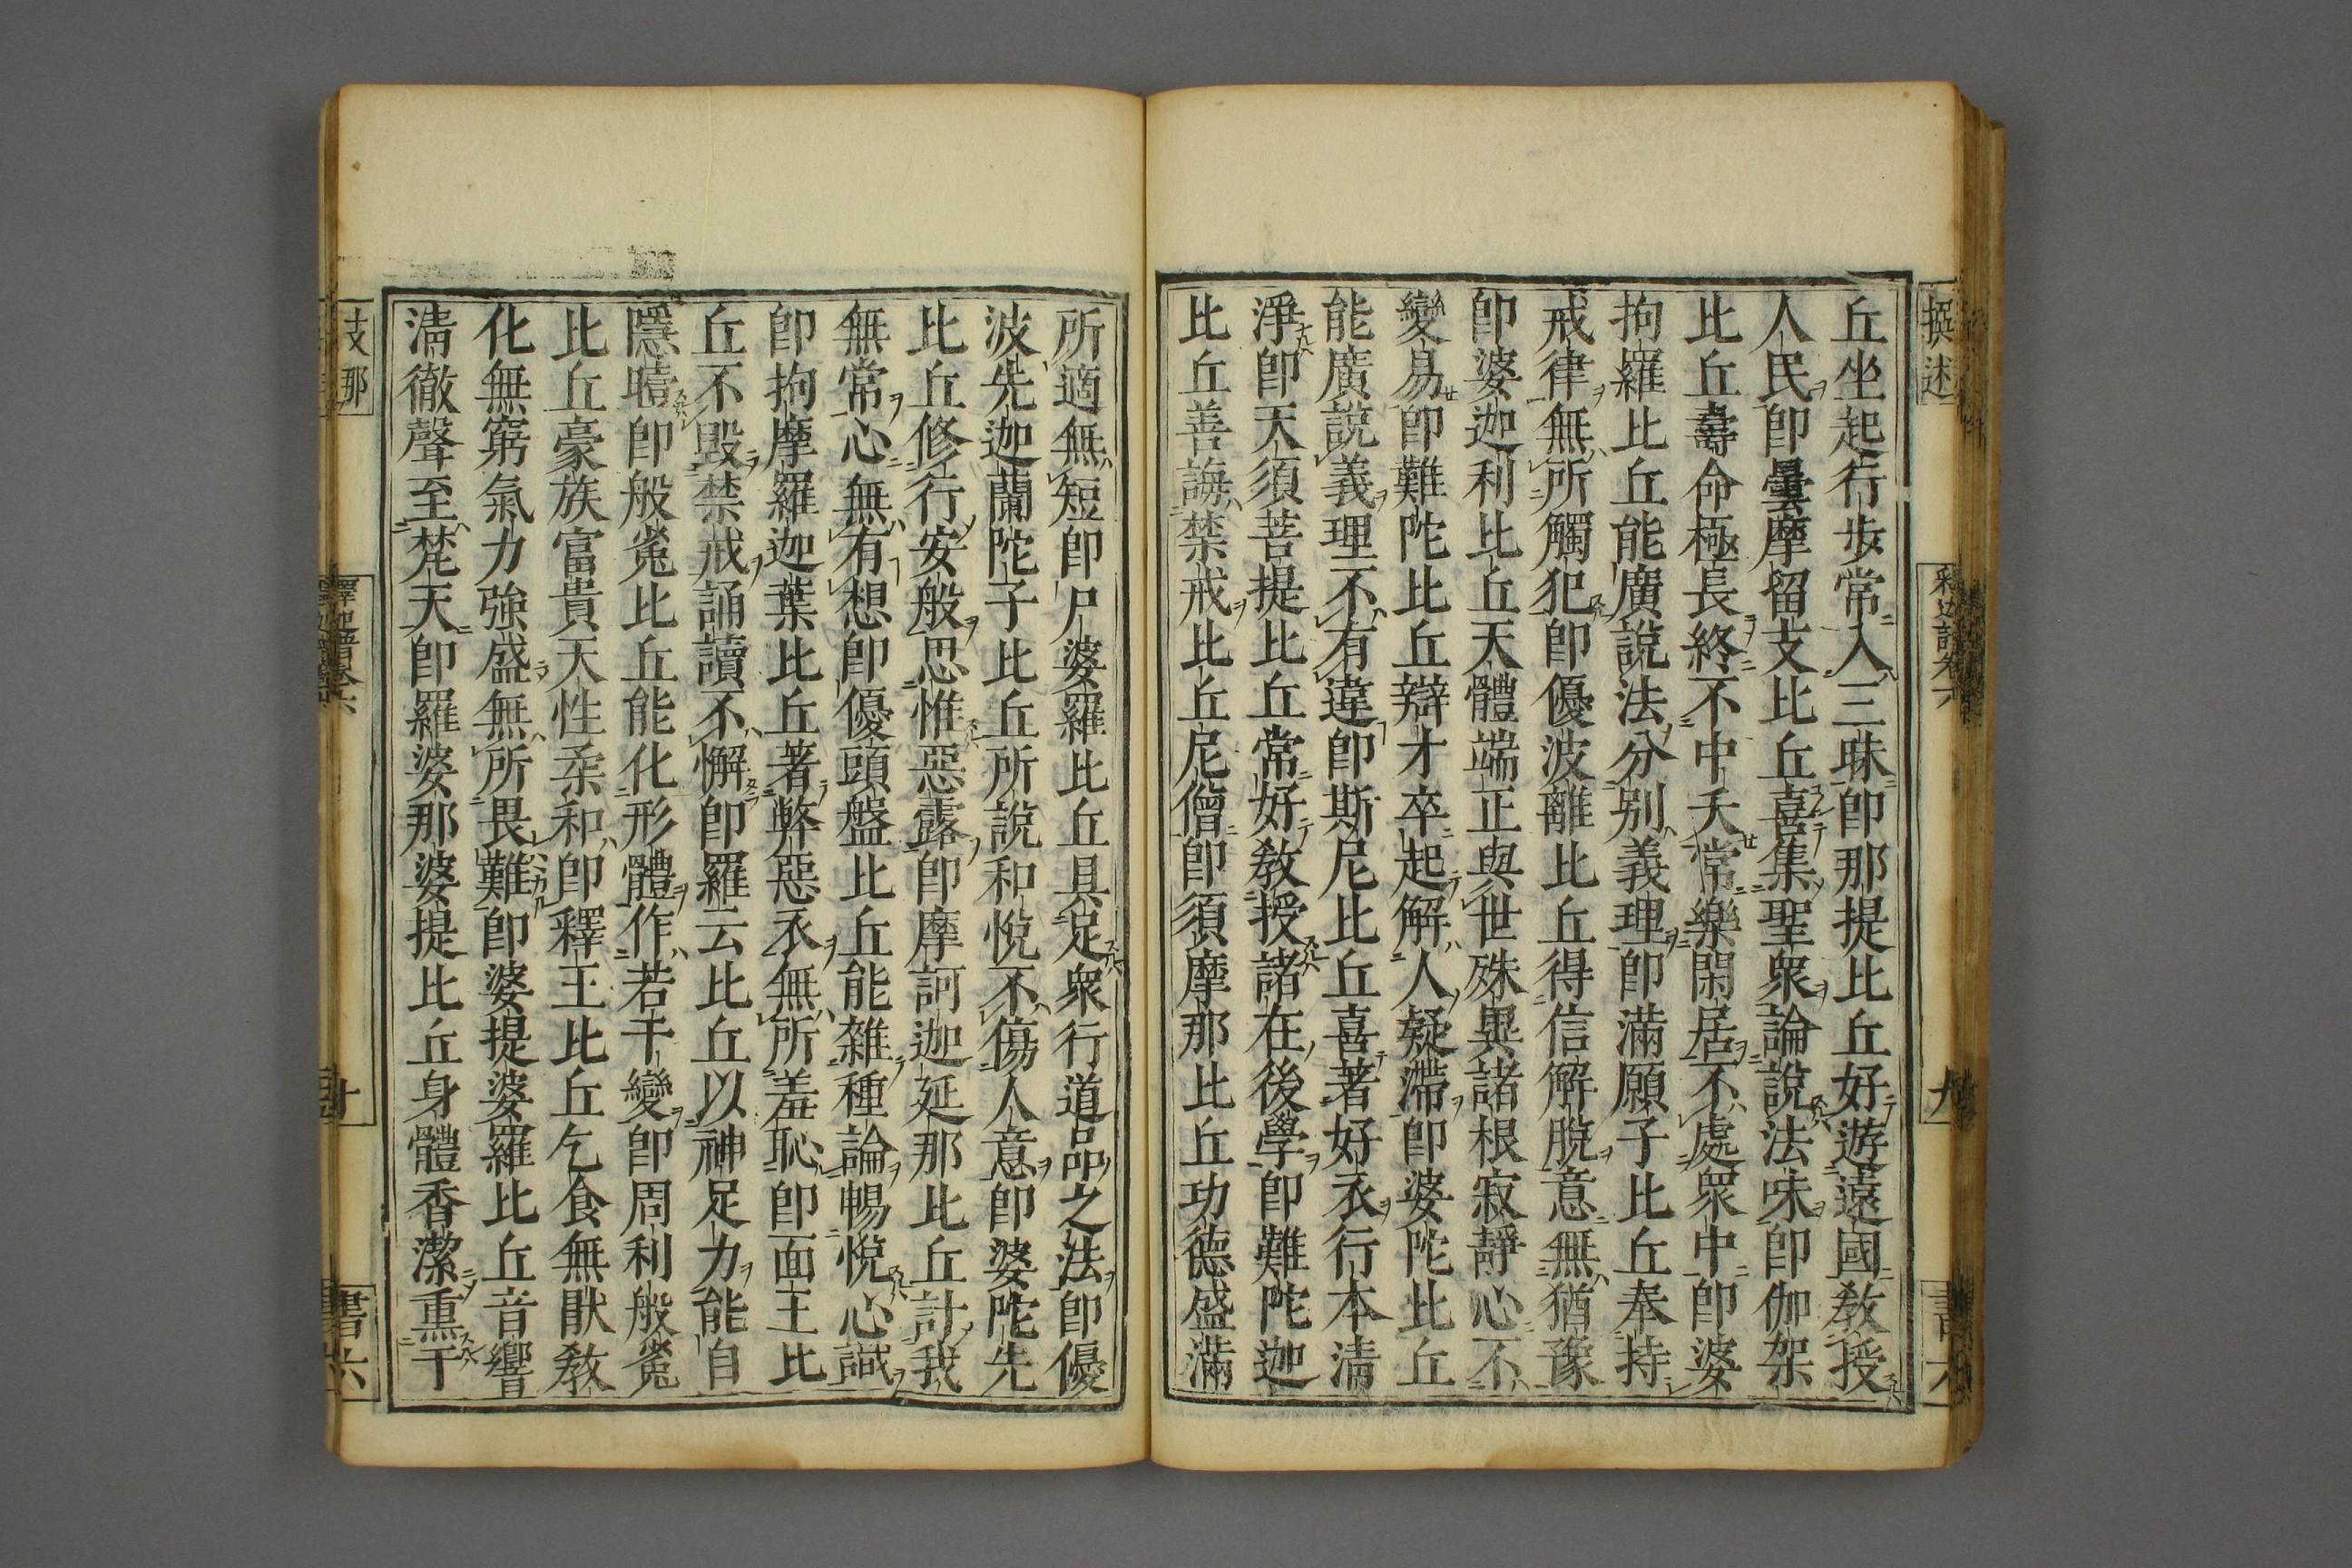 撰述
釋迦譜卷六
九
書六
丘坐起行步常入三昧即那提比丘好遊遠國教授
人民即曇摩留支比丘喜集聖衆論說法味即伽架
比丘壽命極長終不中夭常樂閑居不處衆中即婆
拘羅比丘能廣說法分別義理即滿願子比丘奉持
戒律無所觸犯即優波離比丘得信解脫意無猶豫
即婆迦利比丘天體端正與世殊異諸根寂靜心不
變易即難陀比丘辯才卒起解人疑滯即婆陀比丘
能廣說義理不有違即斯尼比丘喜著好衣行本清
淨即天須菩提比丘常好教授諸在後學即難陀迦
比丘善誨禁戒比丘尼僧即須摩那比丘功德盛滿
所適無短即尸婆羅比丘具足衆行道品之法即優
波先迦蘭陀子比丘所說和悅不傷人意即婆陀先
比丘修行安般思惟惡露即摩訶迦延那比丘計我
無常心無有想即優頭盤比丘能雜種論暢悅心識
即拘摩羅迦葉比丘著弊惡衣無所羞恥即面王比
丘不毀禁戒誦讀不懈即羅云比丘以神足力能自
隱曀即般菟比丘能化形體作若干變即周利般菟
比丘豪族富貴天性柔和即釋王比丘乞食無猒教
化無窮氣力強盛無所畏難即婆提婆羅比丘音響
清徹聲至梵天即羅婆那婆提比丘身體香潔熏干
支那
釋迦譜卷六
十
書六